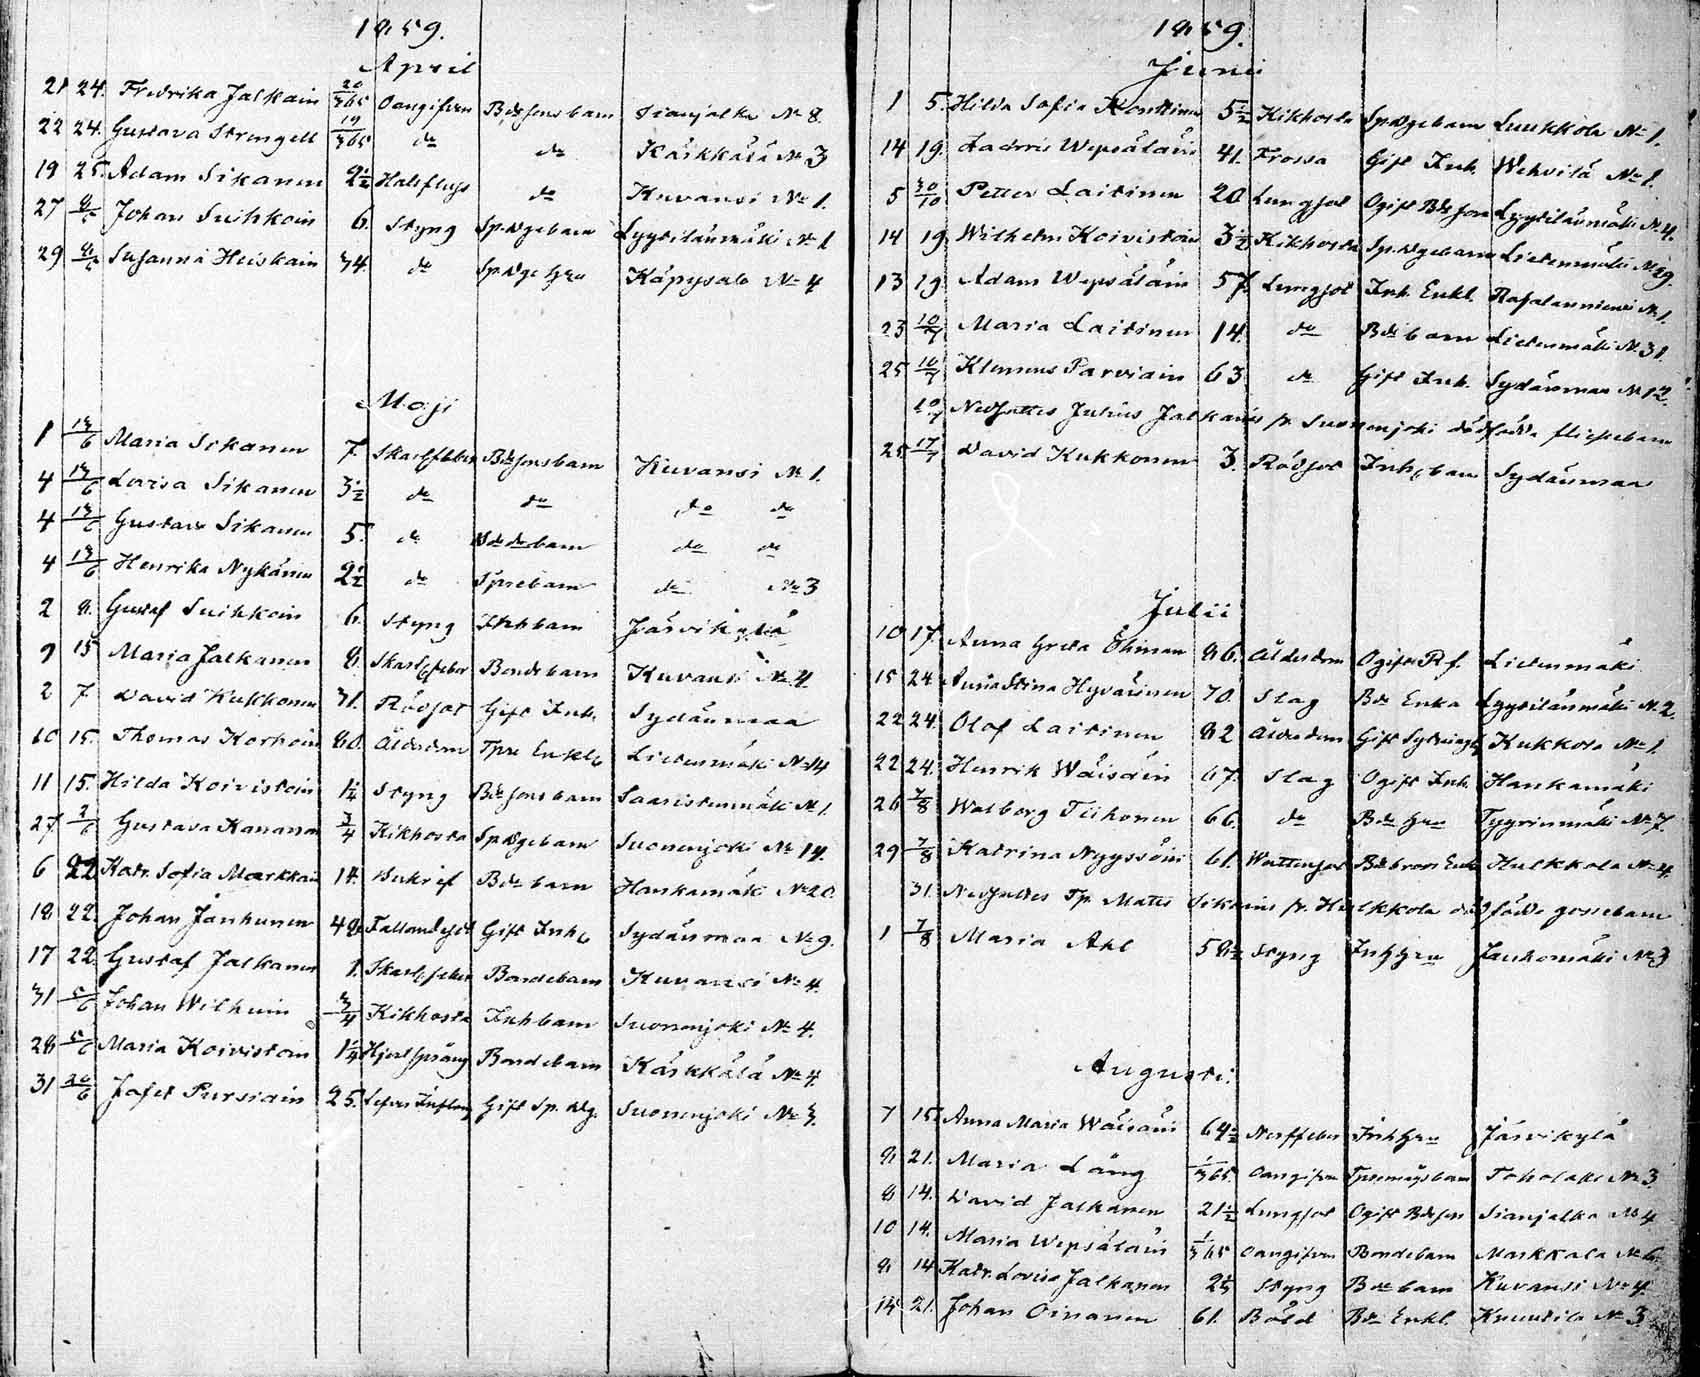 1859.
April
21 24. Fredrika Jalkain 20/365 Oangifven Bdesonsbarn Sianjalka No 8
22 24. Gustava Strengell 19/365 do do Kärkkälä No 3
19 25. Adam Sikanen 2 1/2 Halsfluss do Kuvansi No 1.
27 8/5 Johan Suihkoin 6. Styng Sp.wgebarn Lyytilänmäki No 1
29 8/5 Susanna Heiskain 34. do Sp.wge Hru Käpysalo No 4
Maji
1 13/6 Maria Sikanen 7. Skarl.feber Bdesonsbarn Kuvansi No 1.
4 13/6 Lovisa Sikanen 3 1/2 do do do do
4 13/6 Gustava Sikanen 5. do Bde barn do do
4 13/6 Henrika Nykänen 2 1/2 do Tprebarn do No 3
2 8. Gustaf Suihkoin 6. Styng Inhbarn Järvikylä
9 15 Maria Jalkanen 8. Skarl.feber Bondebarn Kuvansi No 4.
2 7 David Kukkonen 31. Rödsot Gift Inh. Sydänmaa
10 15. Thomas Korhoin 80. Ålderdom Tpre Enkl. Lietenmäki No 14
11 15. Hilda Koivistoin 1 1/4 Styng Bdesonsbarn Saaristenmäki No 1.
27 2/6 Gustava Kananen 3/4 Kikhosta Sp.wgebarn Suonenjoki No 14.
6 22 Katr. Sofia Markkain 14. Bde barn Hankamäki No 20.
18 22. Johan Janhunen 48. Fallandesot Gift Inh. Sydänmaa No 9.
17 22. Gustaf Jalkanen 1. Skarl.feber Bondebarn Kuvansi No 4.
31 5/6 Johan Wilhuin 3/4 Kikhosta Inhbarn Suonenjoki No 4.
28 5/6 Maria Koivistoin 1 1/4 Hjertsprång Bondebarn Kärkkälä No 4.
31 26/6 Jafet Pursiain 25. Gift Sp. wg. Suonenjoki No 3.
1859.
Junii
1 5. Hilda Sofia Konttinen 5 1/2 Kikhosta Sp.wgebarn Luukkola No 1.
14 19. Ladvris Wepsäläin 41. Frossa Gift Inh. Wehvilä No 1.
5 30/10 Petter Laitinen 20 Lungsot Ogift Bde son Lyytilänmäki No 4.
14 19 Wilhelm Koivistoin 3 1/2 Kikhosta Sp.wgebarn Lietenmäki No 29.
13 19 Adam Wepsäläin 57. Lungsot Inh. Enkl. Rasalanniemi No 1.
23 10/7 Maria Laitinen 14. do Bde barn Lietenmäki No 31.
25 10/7 Klemens Parviain 63 do Gift Inh. Sydänmaa No 12.
10/7 Nedsattes Julius Jalkains fr. Suonenjoki dödfödde flickebarn
25 17/7 David Kukkonen 3. Rödsot Inh. barn Sydänmaa
Julii
10 17. Anna Greta Öhman 86. Ålderdom Ogift Pf. Lietenmäki
15 24 Anna Stina Hyvärinen 70. Slag Bde Enka Lyytilänmäki No 2.
22 24. Olof Laitinen 82 Ålderdom Gift Sytninge Kukkola No 1
22 24. Henrik Wäisäin 67. Slag Ogift Inh. Hankamäki
26 7/8 Walborg Tiihonen 66. do Bde Hru Tyyrinmäki No 7.
29 7/8 Katrina Nyyssöin 61. Wattensot Bdebrors Enka Hulkkola No 4.
31. Nedsattes Tp. Matts Sikains fr. Hulkkola dödfödde gossebarn
1 7/8 Maria Ahl 58 1/2 Styng Inh Hru Jauhomäki No 3
Augusti.
7 15. Anna Maria Wäisäin 64 1/2 Nerffeber Inh Hru Järvikylä
8 21. Maria Lång 1/365. Oangifven Tpremågsbarn Toholaks No 3.
8 14. David Jalkanen 21 1/2 Lungsot Ogift Bdeson Sianjalka No 4
10 14. Maria Wepsäläin 1/365 Oangifven Bondebarn Markkala No 6.
8 14 Katr. Lovisa Jalkanen Styng Bde barn Kuvansi No 4.
14 21. Johan Oinanen 61. Böld Bde Enkl. Knuutila No 3.